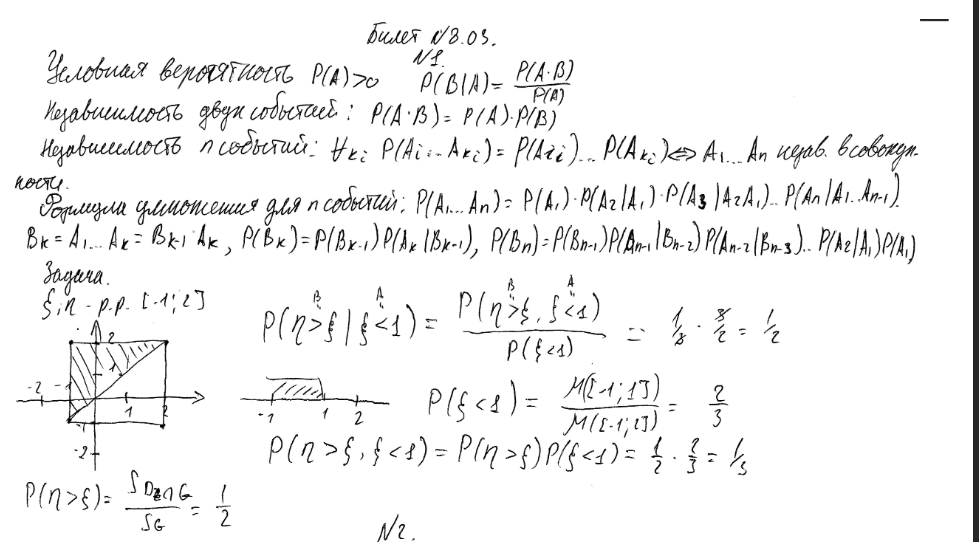 Билет №8.03.
№1.
Условная вероятность P(A)>0 P(B|A)= P(A·B)/P(A)
Независимость двух событий: P(A·B)= P(A)·P(B)
Независимость n событий: ∀ki P(Ai... Aki)= P(Ai)... P(Aki)⇔ A1...An незав. в совокуп-
ности.
Формула умножения для n событий: P(A1...An)= P(A1)·P(A2|A1)·P(A3|A2A1)... P(An|A1..An-1).
Bk=A1...Ak=Bk-1·Ak, P(Bk)=P(Bk-1)P(Ak|Bk-1), P(Bn)=P(Bn-1)P(An-1|Bn-2)P(An-2|Bn-3)... P(A2|A1)P(A1)
Задача.
ξ;η - р.р. [-1;2]
P(η>ξ|ξ<1) = P(η>ξ, ξ<1)/P(ξ<1) = 1/3 · 3/2 = 1/2
B A B A
2 1 -2 -1 1 2 -1 -2
-1 1 2
P(ξ<1) = M([-1;1])/M([-1;2]) = 2/3
P(η>ξ, ξ<1) = P(η>ξ)P(ξ<1)= 1/2 · 2/3 = 1/3
P(η>ξ)= = 1/2
№2.